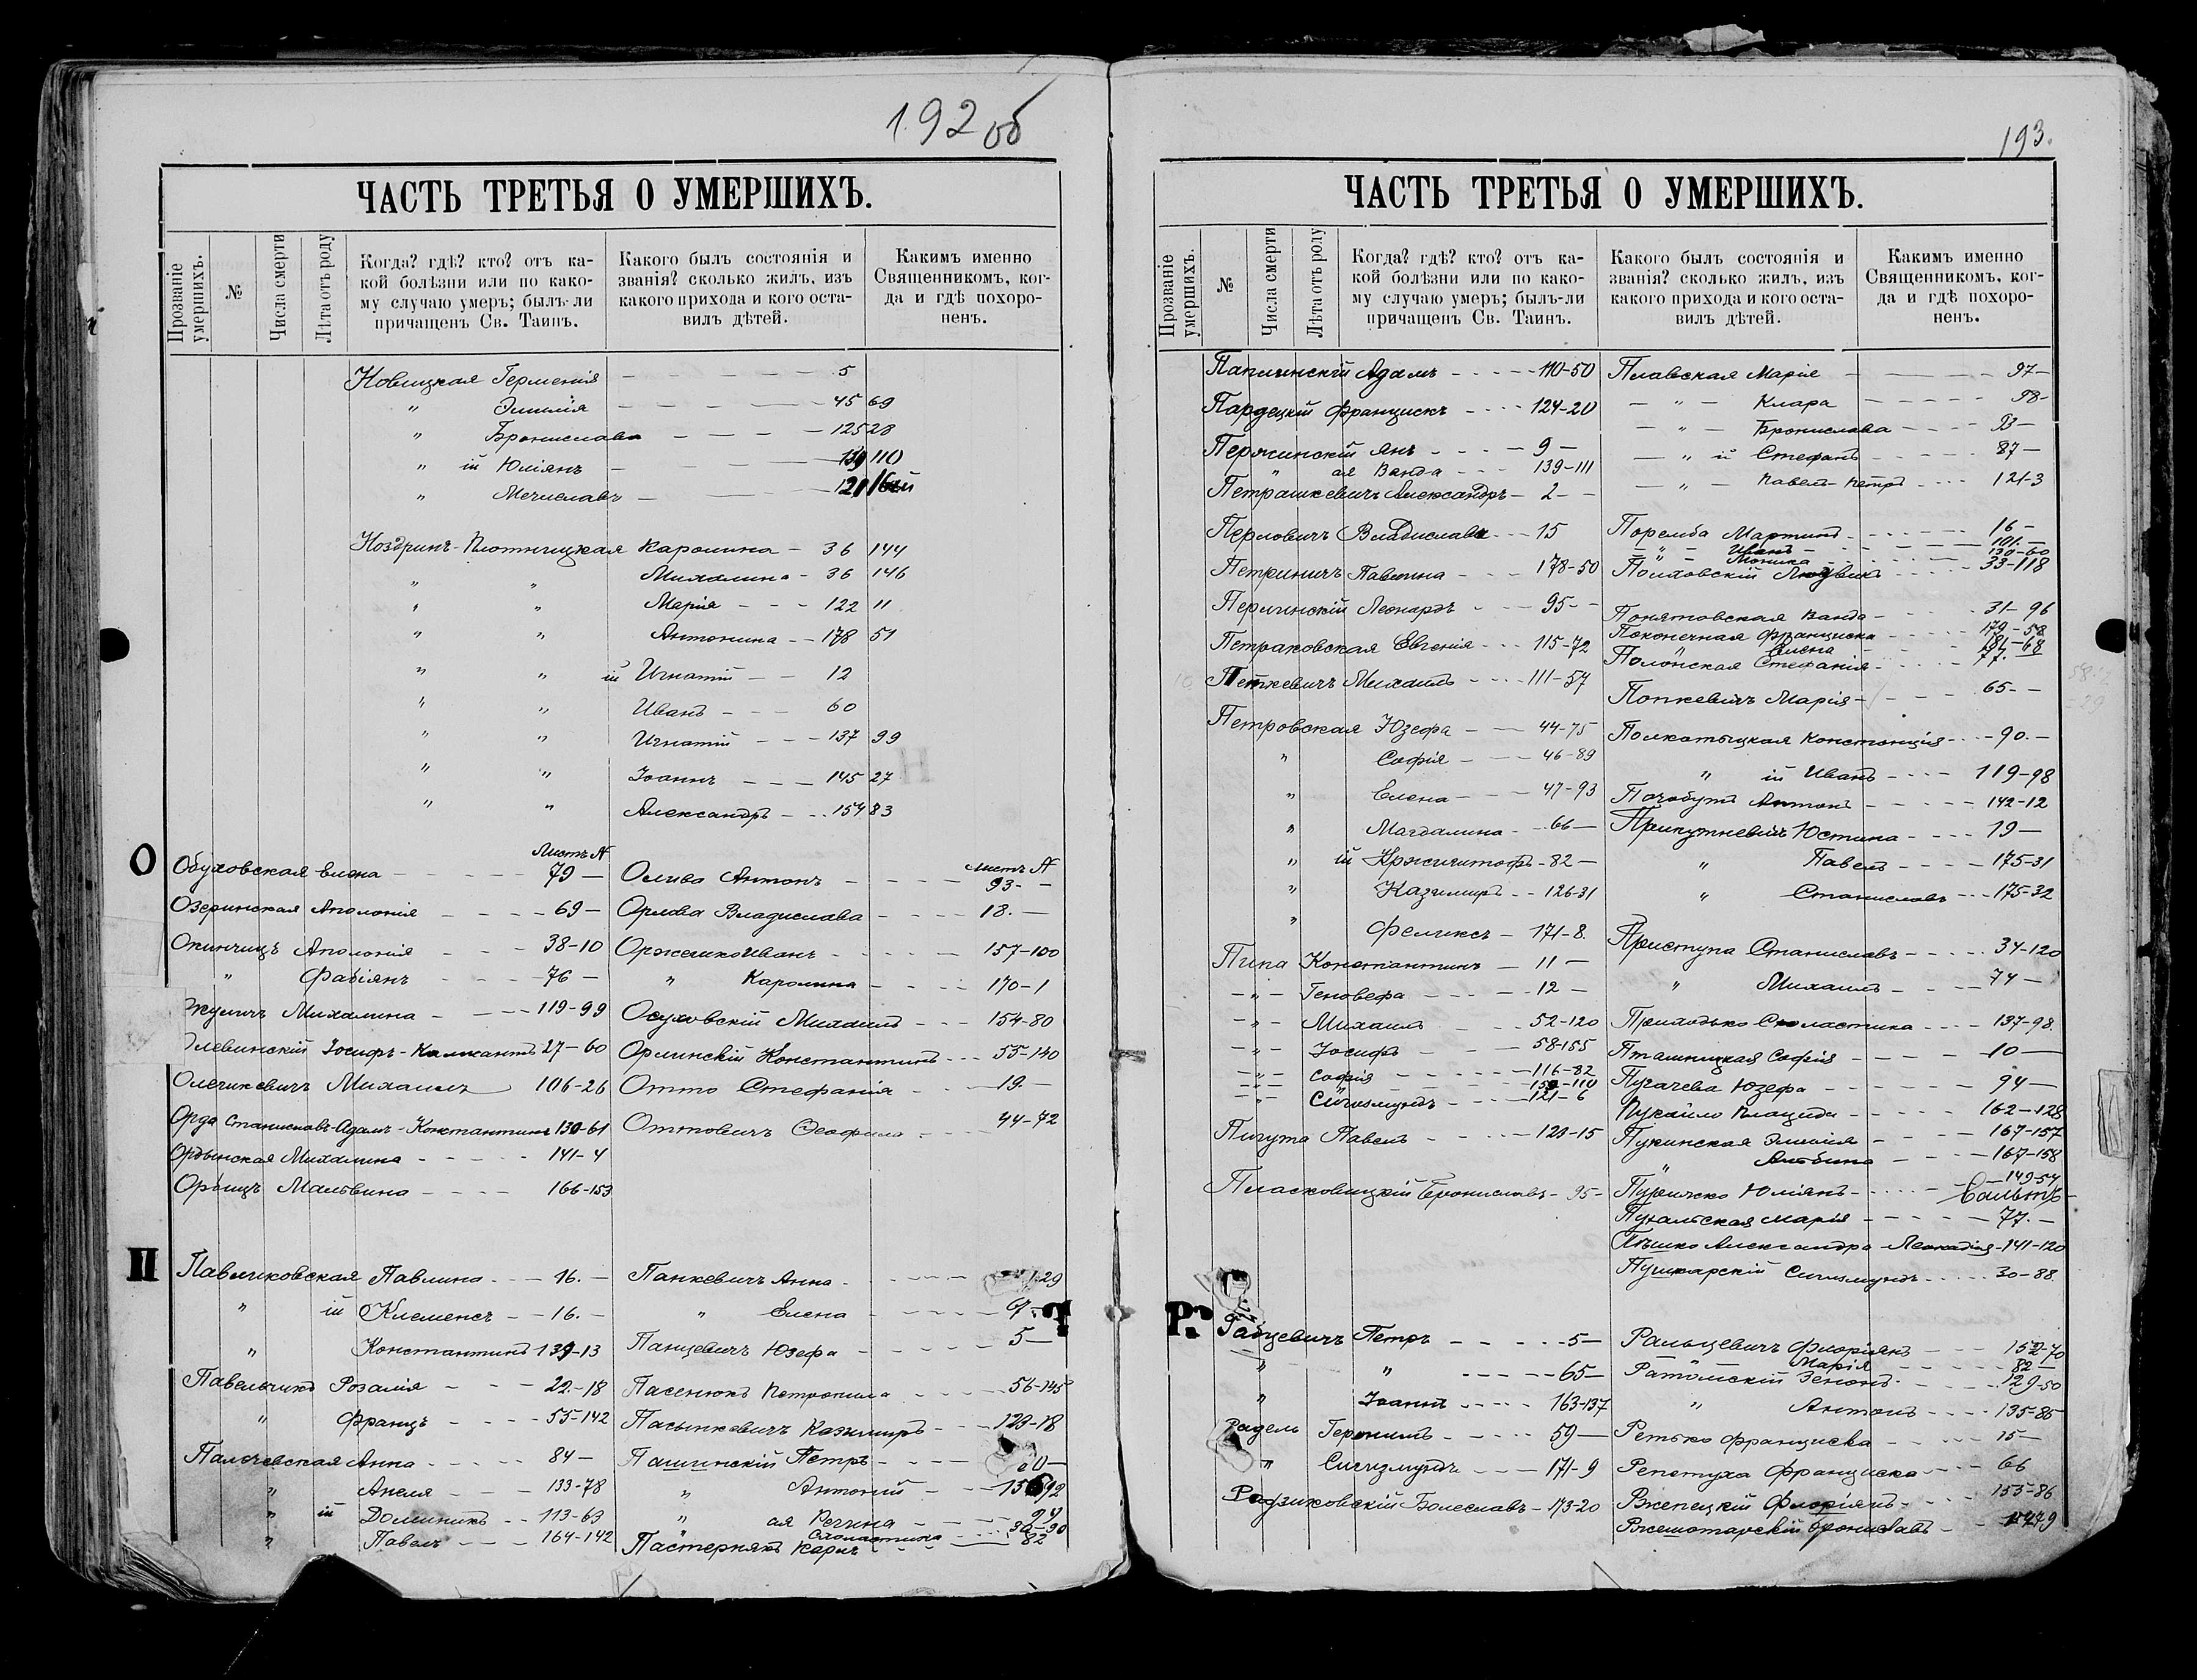 192 об
ЧАСТЬ ТРЕТЬЯ О УМЕРШИХЪ.
Прозваніе умершихъ.
№
Числа смерти
Лѣта отъ роду
Когда? гдѣ? кто? отъ ка-
кой болѣзни или по како-
му случаю умеръ; былъ-ли
причащенъ Св. Таинъ.
Какого былъ состоянія и
званія? сколько жилъ, изъ
какого прихода и кого оста-
вилъ дѣтей.
Какимъ именно
Священникомъ, ког-
да и гдѣ похоро-
ненъ.
Новицкая Герменія 5
" Эмилія 45 69
" Бронислава 125 28
" ій Юліянъ 110
" Мечиславъ 121
Ноздринъ-Плотницкая Каролина 36 144
" " Михалина 36 146
" " Марія 122 11
" " Антонина 178 51
" " ій Игнатій 12
" " Иванъ 60
" " Игнатій 137 99
" " Іоаннъ 145 27
" " Александръ 154 83
О
Листъ №
Обуховская Елена 79 —
Озеринская Аполонія 69 —
Окинчицъ Аполонія 38-10
" Фабіянъ 76 —
Михалина 119-99
Іосифъ-Каликантъ 27-60
Олечикевичъ Михаилъ 106-26
Орда Станиславъ-Адамъ-Константинъ 130-61
Ордынская Михалина 141-4
Орвицъ Мальвина 166-153
Листъ №
Олива Антонъ 93 —
Орлова Владислава 18. —
Оржешко Иванъ 157-100
" Каролина 170-1
Осуховскій Михаилъ 154-80
Орлинскій Константинъ 55-140
Отто Стефанія 19 —
Оттовичъ Теофила 44-72
П
Павликовская Павлина 16. —
" ій Клеменсъ 16. —
" Константинъ 139-13
Павельчикъ Розалія 22-18
" Францъ 55-142
Палчевская Анна 84 —
" Анеля 133-78
" ій Доминикъ 113-63
" Павелъ 164-142
Панкевичъ Анна 29
" Елена
Панцевичъ Юзефа 5 —
Пасенюкъ Петронила 56-145
Пасынкевичъ Казимиръ 123-18
Пашинскій Петръ
" Антоній 92
" ая Регина 94
" Схоластика 30-90
Пастернякъ Кароль 82
193.
ЧАСТЬ ТРЕТЬЯ О УМЕРШИХЪ.
Прозваніе умершихъ.
№
Числа смерти
Лѣта отъ роду
Когда? гдѣ? кто? отъ ка-
кой болѣзни или по како-
му случаю умеръ; былъ-ли
причащенъ Св. Таинъ.
Какого былъ состоянія и
званія? сколько жилъ, изъ
какого прихода и кого оста-
вилъ дѣтей.
Какимъ именно
Священникомъ, ког-
да и гдѣ похоро-
ненъ.
Паплинскій Адамъ 110-50
Пардецкій Францискъ 124-20
Пержинскій Янъ 9 —
" ая Ванда 139-111
Петрашкевичъ Александръ 2 —
Перловичъ Владислава 15
Петриничъ Павлина 178-50
Перлинскій Леонардъ 95 —
Петраковская Евгенія 115-72
Петкевичъ Михаилъ 111-57
Петровская Юзефа 44-75
" Софія 46-89
" Елена 47-93
" Магдалина 66 —
" ій Кржиштофъ 82 —
" Казимиръ 126-31
" Феликсъ 171-8.
Пипа Константинъ 11 —
" Геновефа 12 —
" Михаилъ 52-120
" Іосифъ 58-155
" Софія 116-82
" Сигизмундъ 121-6
Пигута Павелъ 123-15
Пласковицкій Брониславъ 95 —
Плавская Марія 97 —
" Клара 98 —
" Бронислава 93 —
" й Стефанъ 87 —
" Павелъ-Петръ 121-3
Поремба Мартинъ 16 —
" Иванъ 101. —
" Моника 130-60
Полховскій Людвикъ 33-118
Понятовская Ванда 31-96
Поконечная Франциска 179-58
" Елена 181-68
Полонская Стефанія 77. —
Попкевичъ Марія 65 —
Полкотыцкая Констанція 90. —
" ій Иванъ 119-98
Почобутъ Антонъ 142-12
Прикутневичъ Юстина 19 —
" Павелъ 175-31
" Станиславъ 175-32
Приступа Станиславъ 34-120
" Михаилъ 74 —
Приходько Схоластика 137-98.
Пташницкая Софія 10 —
Пугачева Юзефа 94 —
Пукайло Плацида 162-128
Пукинская Эмилія 167-157
" Альбина 167-158
Юліянъ 149-54
Пухальская Марія 77. —
Александра Леокадія 141-120
Пушкарскій Сигизмундъ 30-88.
Р.
Рабцевичъ Петръ 5 —
" " 65 —
" Іоаннъ 163-137
Радель Геронимъ 59 —
" Сигизмундъ 171-9
Радзиковскій Болеславъ 173-20
Ральцевичъ Флоріянъ 152-70
" Марія 82 —
Ратомскій Зенонъ 129-50
" Антонъ 135-85
Ретько Франциска 15 —
Репетуха Франциска 66
Ржепецкій Флоріянъ 155-86
Ржешотарскій Брониславъ